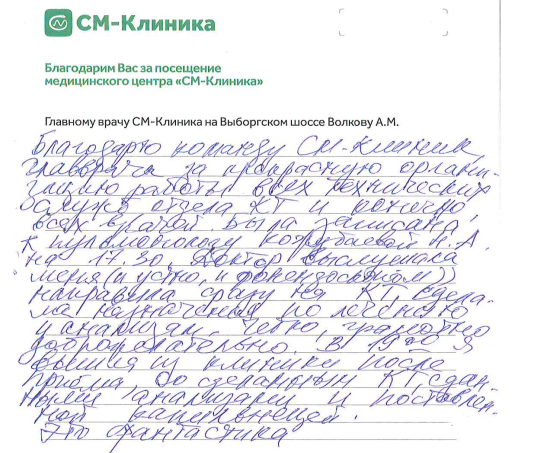 СМ-Клиника
Благодарим Вас за посещение
медицинского центра «СМ-Клиника»
Главному врачу СМ-Клиника на Выборгском шоссе Волкову А.М.
Благодарю команду СМ-Клиник,
главврача за прекрасную органи-
зацию работы всех технических
служб отдела КТ и конечно,
всех врачей. Была записана
к пульмонологу А.
на 17.30. Доктор выслушала
меня (и устно, и фонендоскопом))
направила сразу на КТ, сдела-
ла назначения по лечению
и анализам. Четко, грамотно
доброжелательно. В 19 я
вышла из клиники после
приёма, со сделанным КТ, сдан-
ными анализами и поставлен-
ной капельницей.
Это фантастика